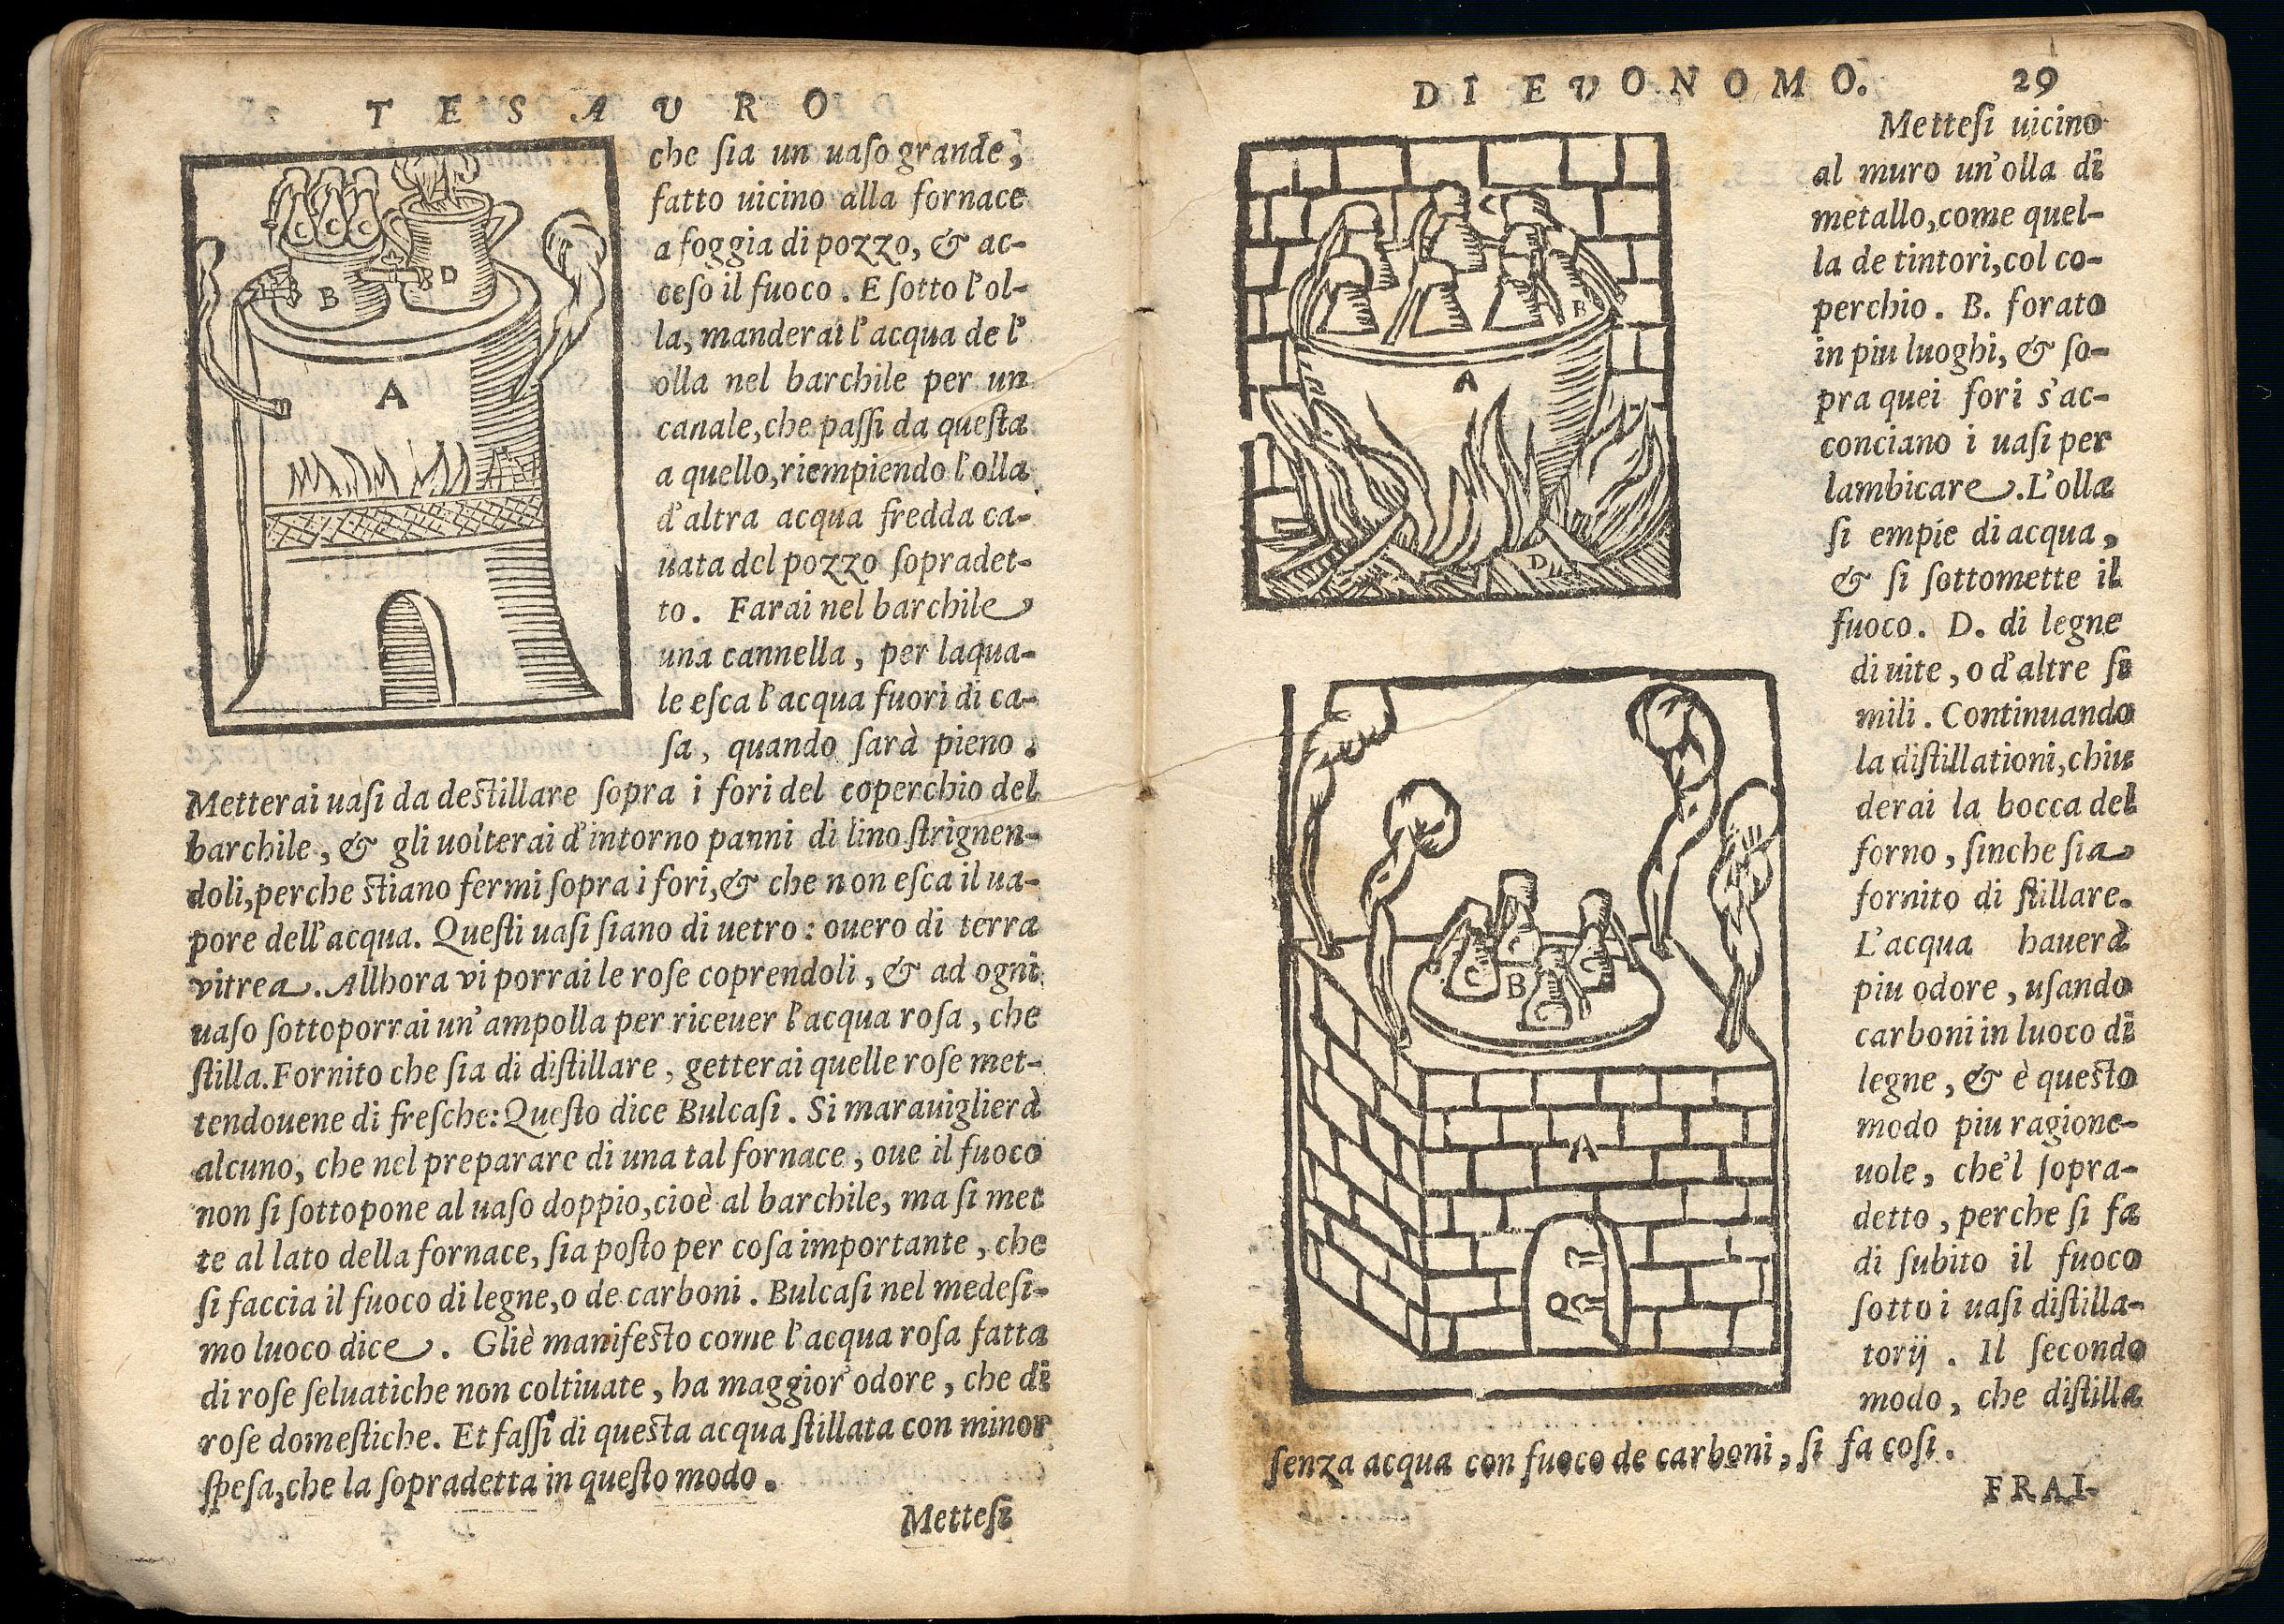 TESAVRO
che ſia un uaſo grande,
fatto uicino alla fornace
a foggia di pozzo, & ac-
ceso il fuoco. E ſotto l'ol-
la, manderai l'acqua de l'
olla nel barchile per un
canale, che paſſi da queſta
a quello, riempiendo l'olla
d'altra acqua fredda ca-
uata del pozzo ſopradet-
to. Farai nel barchile
una cannella, per laqua-
le eſca l'acqua fuori di ca-
ſa, quando ſarà pieno.
Metterai uaſi da deſtillare ſopra i fori del coperchio del
barchile, & gli uolterai d'intorno panni di lino ſtrignen-
doli, perche ſtiano fermi ſopra i fori, & che non eſca il ua-
pore dell'acqua. Queſti uaſi ſiano di uetro: ouero di terra
vitrea. Allhora vi porrai le roſe coprendoli, & ad ogni
uaſo sottoporrai un'ampolla per riceuer l'acqua roſa, che
ſtilla. Fornito che ſia di diſtillare, getterai quelle roſe met-
tendouene di freſche: Queſto dice Bulcaſi. Si marauiglierà
alcuno, che nel preparare di una tal fornace, oue il fuoco
non ſi ſottopone al uaſo doppio, cioè al barchile, ma ſi met
te al lato della fornace, ſia poſto per coſa importante, che
ſi faccia il fuoco di legne, o de carboni. Bulcaſi nel medeſi-
mo luoco dice. Gliè manifeſto come l'acqua roſa fatta
di roſe ſeluatiche non coltiuate, ha maggior odore, che di
roſe domeſtiche. Et faſſi di queſta acqua ſtillata con minor
ſpeſa, che la ſopradetta in queſto modo.
Metteſi
C C C
B D
A
DI EVONOMO. 29
Metteſi uicino
al muro un'olla di
metallo, come quel-
la de tintori, col co-
perchio. B. forato
in piu luoghi, & ſo-
pra quei fori s'ac-
conciano i uaſi per
lambicare. L'olla
ſi empie di acqua,
& ſi ſottomette il
fuoco. D. di legne
di uite, o d'altre ſi
mili. Continuando
la diſtillationi, chiu
derai la bocca del
forno, ſinche ſia
fornito di ſtillare.
L'acqua hauerà
piu odore, uſando
carboni in luoco di
legne, & è queſto
modo piu ragione-
uole, che'l ſopra-
detto, perche ſi fa
di ſubito il fuoco
ſotto i uaſi diſtilla-
torij. Il ſecondo
modo, che diſtilla
ſenza acqua con fuoco de carboni, ſi fa coſi.
FRAI-
C
B
A
D
C C
C B C
A
D